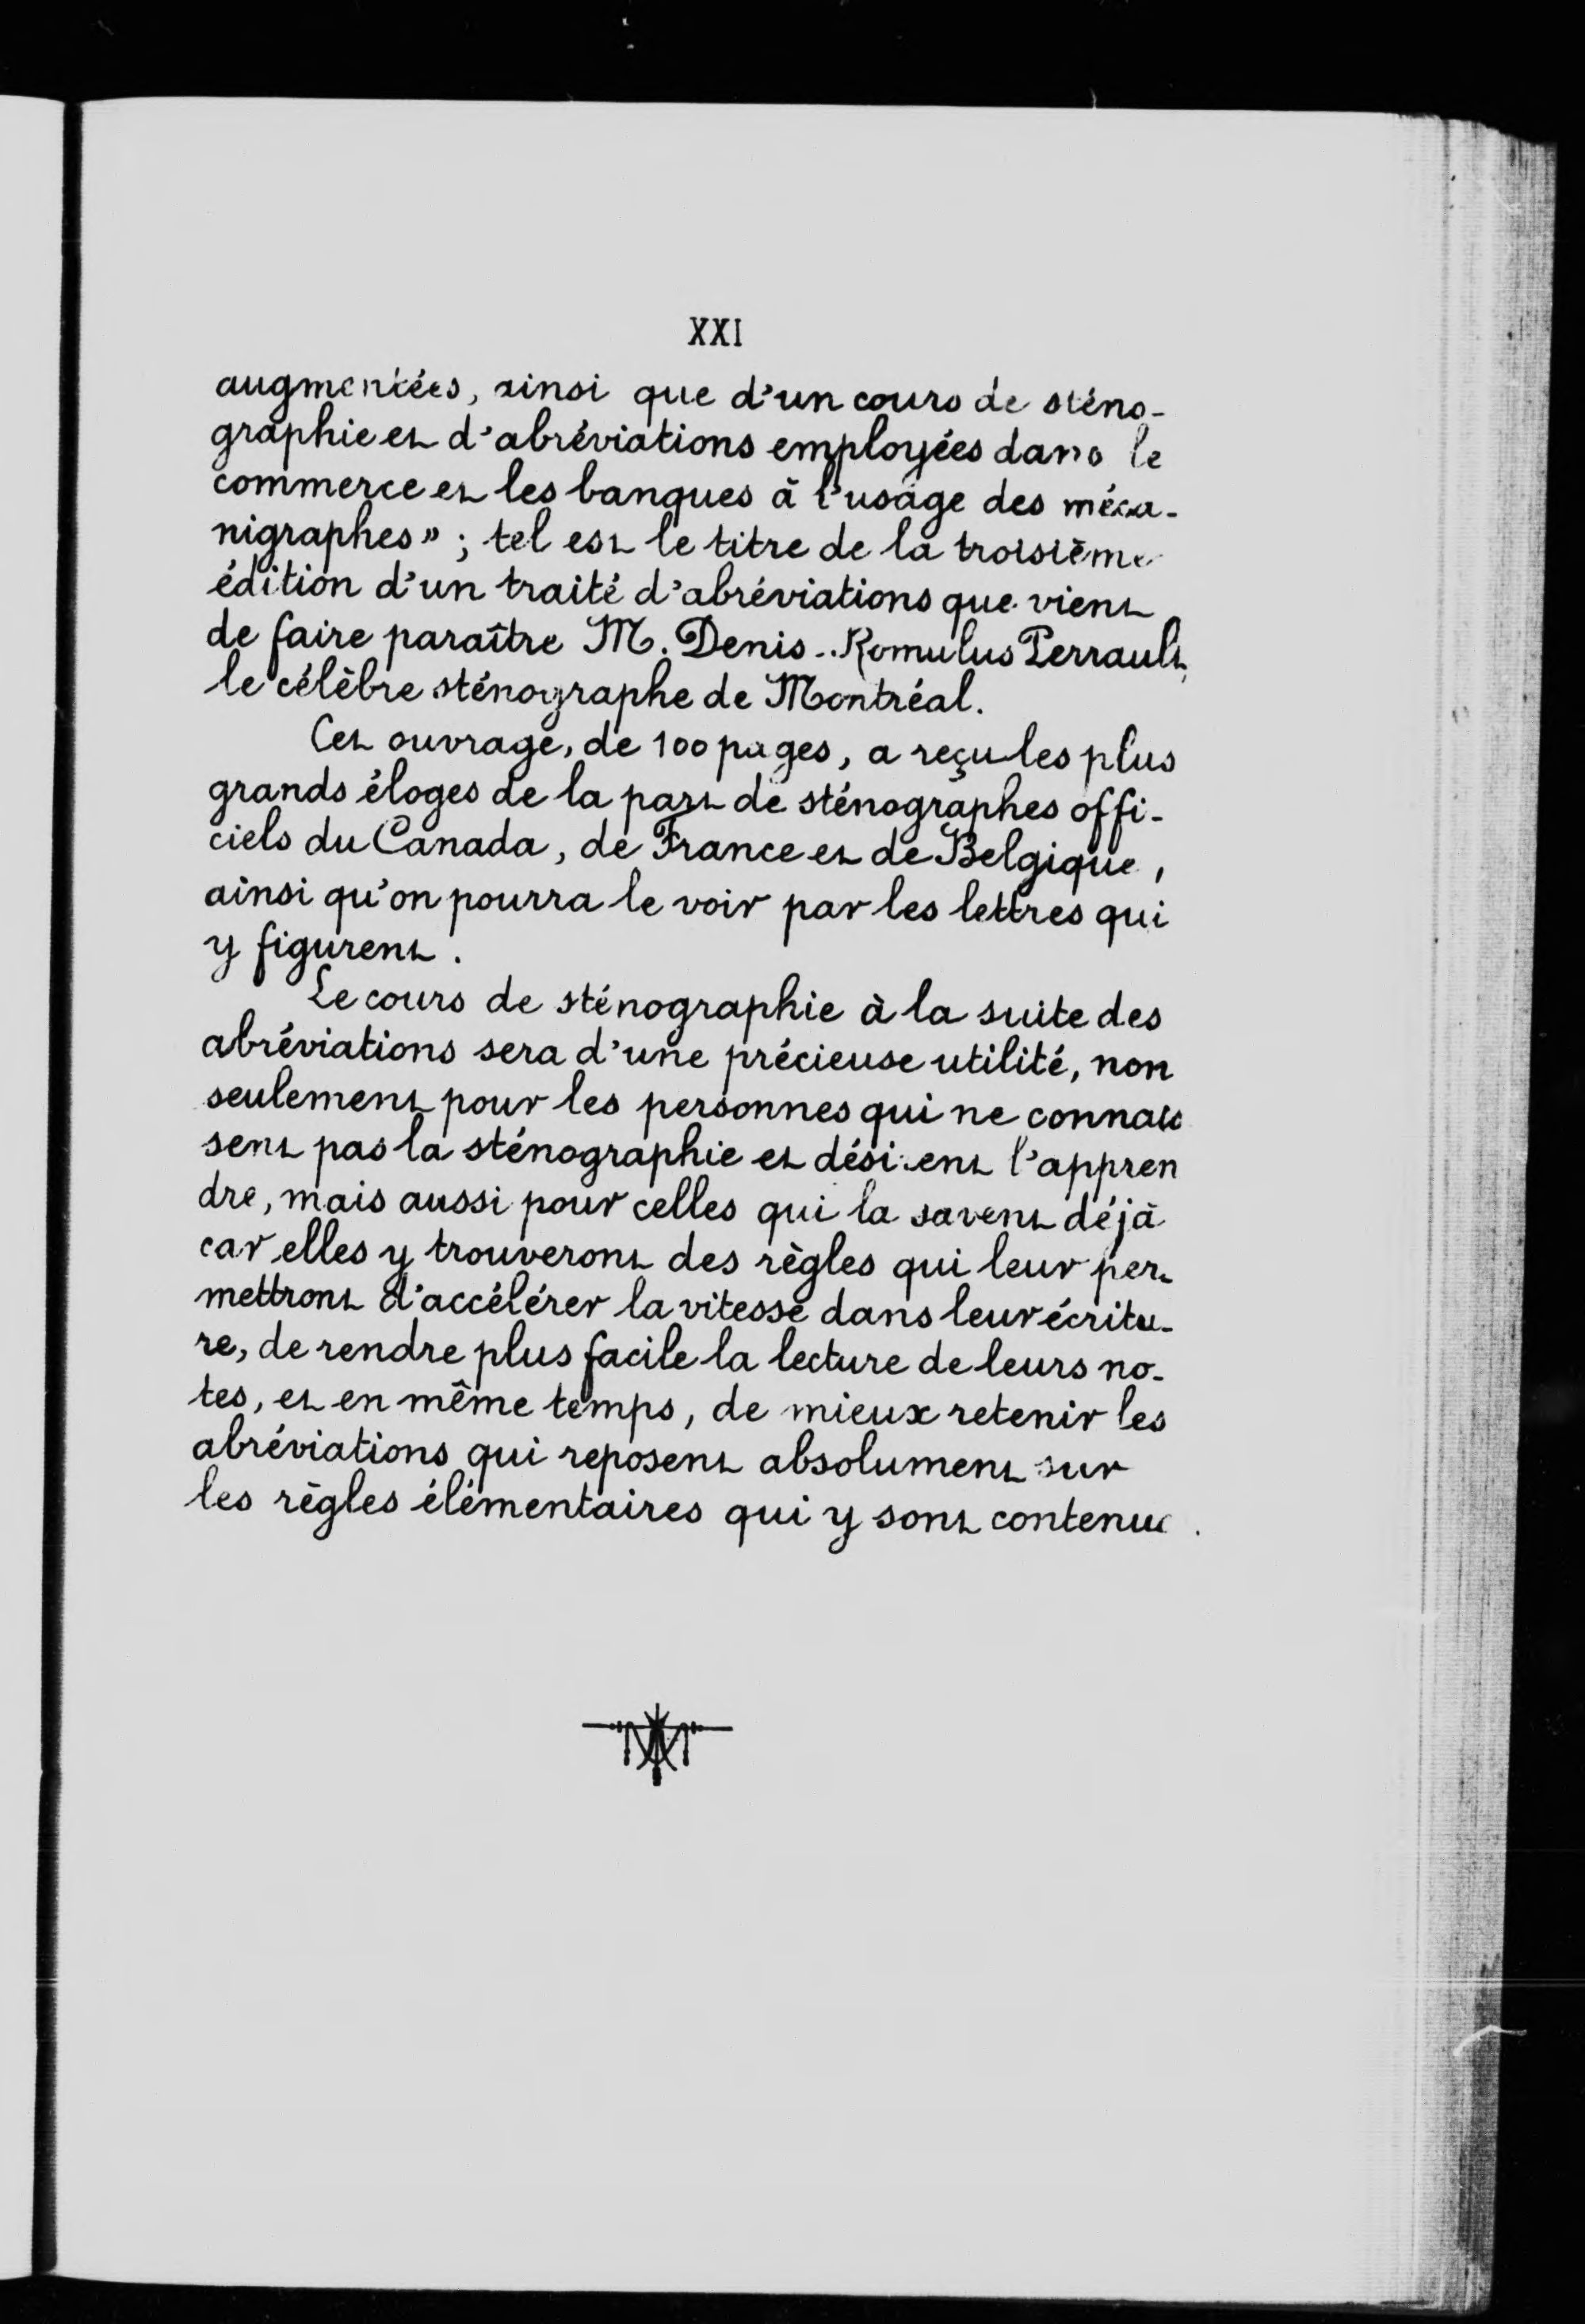 XXI
augmentées, ainsi que d'un cours de sténo-
graphie et d'abréviations employées dans le
commerce et les banques à l'usage des méca-
nigraphes» ; tel est le titre de la troisième
édition d'un traité d'abréviations que vient
de faire paraître M. Denis-Romulus Perrault,
le célèbre sténographe de Montréal.
Cet ouvrage, de 100 pages, a reçu les plus
grands éloges de la part de sténographes offi-
ciels du Canada, de France et de Belgique,
ainsi qu'on pourra le voir par les lettres qui
y figurent.
Le cours de sténographie à la suite des
abréviations sera d'une précieuse utilité, non
seulement pour les personnes qui ne connais
sent pas la sténographie et désirent l'appren
dre, mais aussi pour celles qui la savent déjà
car elles y trouveront des règles qui leur per-
mettront d'accélérer la vitesse dans leur écritu-
re, de rendre plus facile la lecture de leurs no-
tes, et en même temps, de mieux retenir les
abréviations qui reposent absolument sur
les règles élémentaires qui y sont contenues.